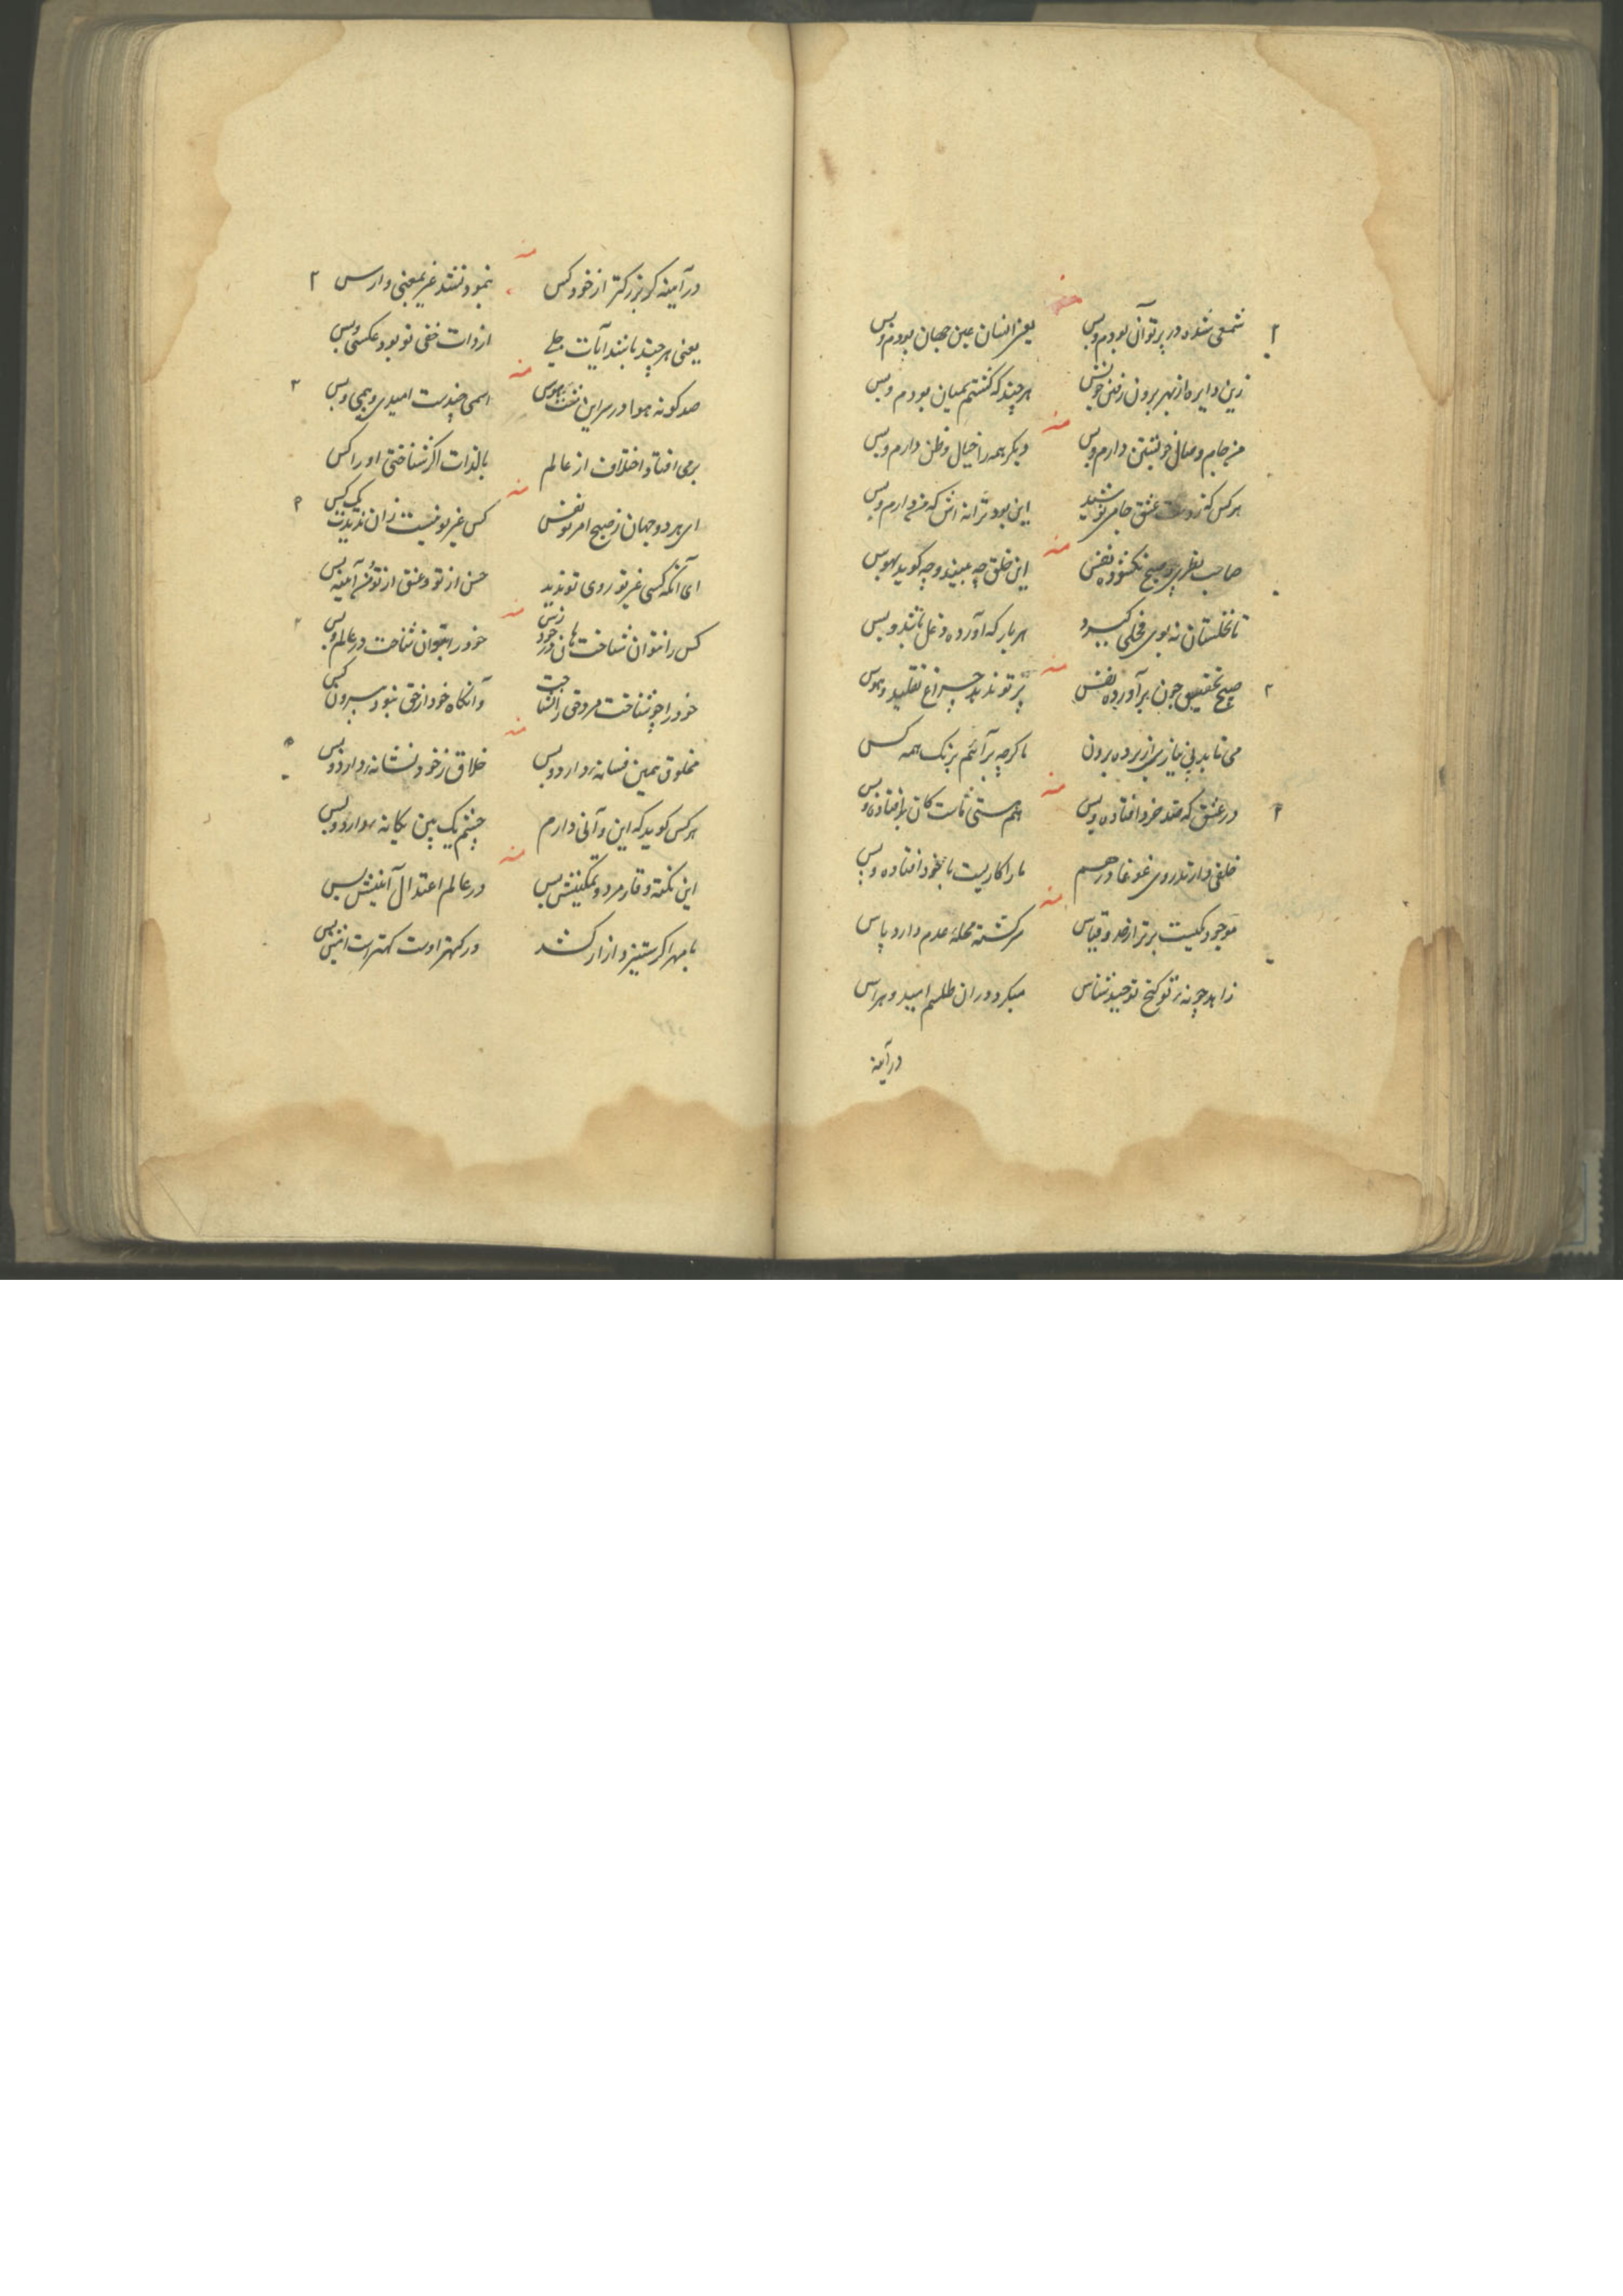 شمعی شده در پرتو آن بودم و بس یعنی انسان عین جهان بودم و بس
زین دایره از بهر برون رفتن خویش هر چند که گشتم بمیان بودم و بس
من جام وصال خویشتن دارم و بس دیگر همه را خیال و ظن دارم و بس
هر کس که ز دست عشق جامی نوشید این بود ترانه اش که من دارم و بس
صاحب نظری چو صبح نگشود نفس این خلق چه بیند و چه گوید بهوس
تا نخلستان نه بوی فحلی گیرد هر بار که آورده دغل باشد و بس
صبح تحقیق چون برآورده نفس پرتو ندهد چراغ تقلید و هوس
می تابد بی نیازی از پرده برون ما گرچه برآئیم برنگ همه کس
در عشق که عقد خرد افتاده و بس هم هستی ماست کان بر افتاده و بس
خلقی دارند روی غوغا در هم ما را کاریست با خود افتاده و بس
موجود یکیست برتر از حد و قیاس سرگشته محلهٔ عدم دارد پاس
زاهد چو نه ز تو گنج توحید شناس میگرد در آن طلسم امید و هراس
در آینه
در آینه گر بزرگتر از خود کس ننمودند غیر بمعنی وارس
یعنی هر چند باشند آیات جلی از ذات خفی تو بود عکسی و بس
صد گونه هوا در سر این مشت هوس اسمی چندست امیدی و بیمی و بس
برمی افتاد اختلاف از عالم بالذات اگر شناختی او را کس
ای هر دو جهان ز صبح امر تو نفس کس غیر تو نیست زان ندیدت یک کس
ای آنکه کسی غیر تو روی تو ندید حسن از تو و عشق از تو من آینه بس
کس را نتوان شناخت هان در خود رس خود را بتوان شناخت در عالم و بس
خود را چو شناخت مرد حق را بشناخت و آنگاه خود از حق نبود بیرون کس
مخلوق همین فسانه دارد و بس خلاق ز خود نشانه دارد و بس
هر کس گوید که این و آنی دارم چشم یک بین یگانه دارد و بس
این نکته وقار مرد و تمکینش بس در عالم اعتدال آئینش بس
با مهر اگر ستیز و آزار کشد ور کهتر اوست کهتر است اینش بس